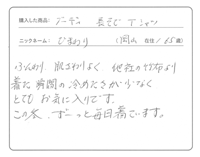 購入した商品: ブーデン 長そで Tシャツ
ニックネーム: ひまわり (岡山 在住 / 65 歳)
ふんわり、肌ざわりよく 他社の 布より
着た瞬間の冷めたさが少なく
とてもお気に入りです。
この冬、ずーっと毎日着ています。